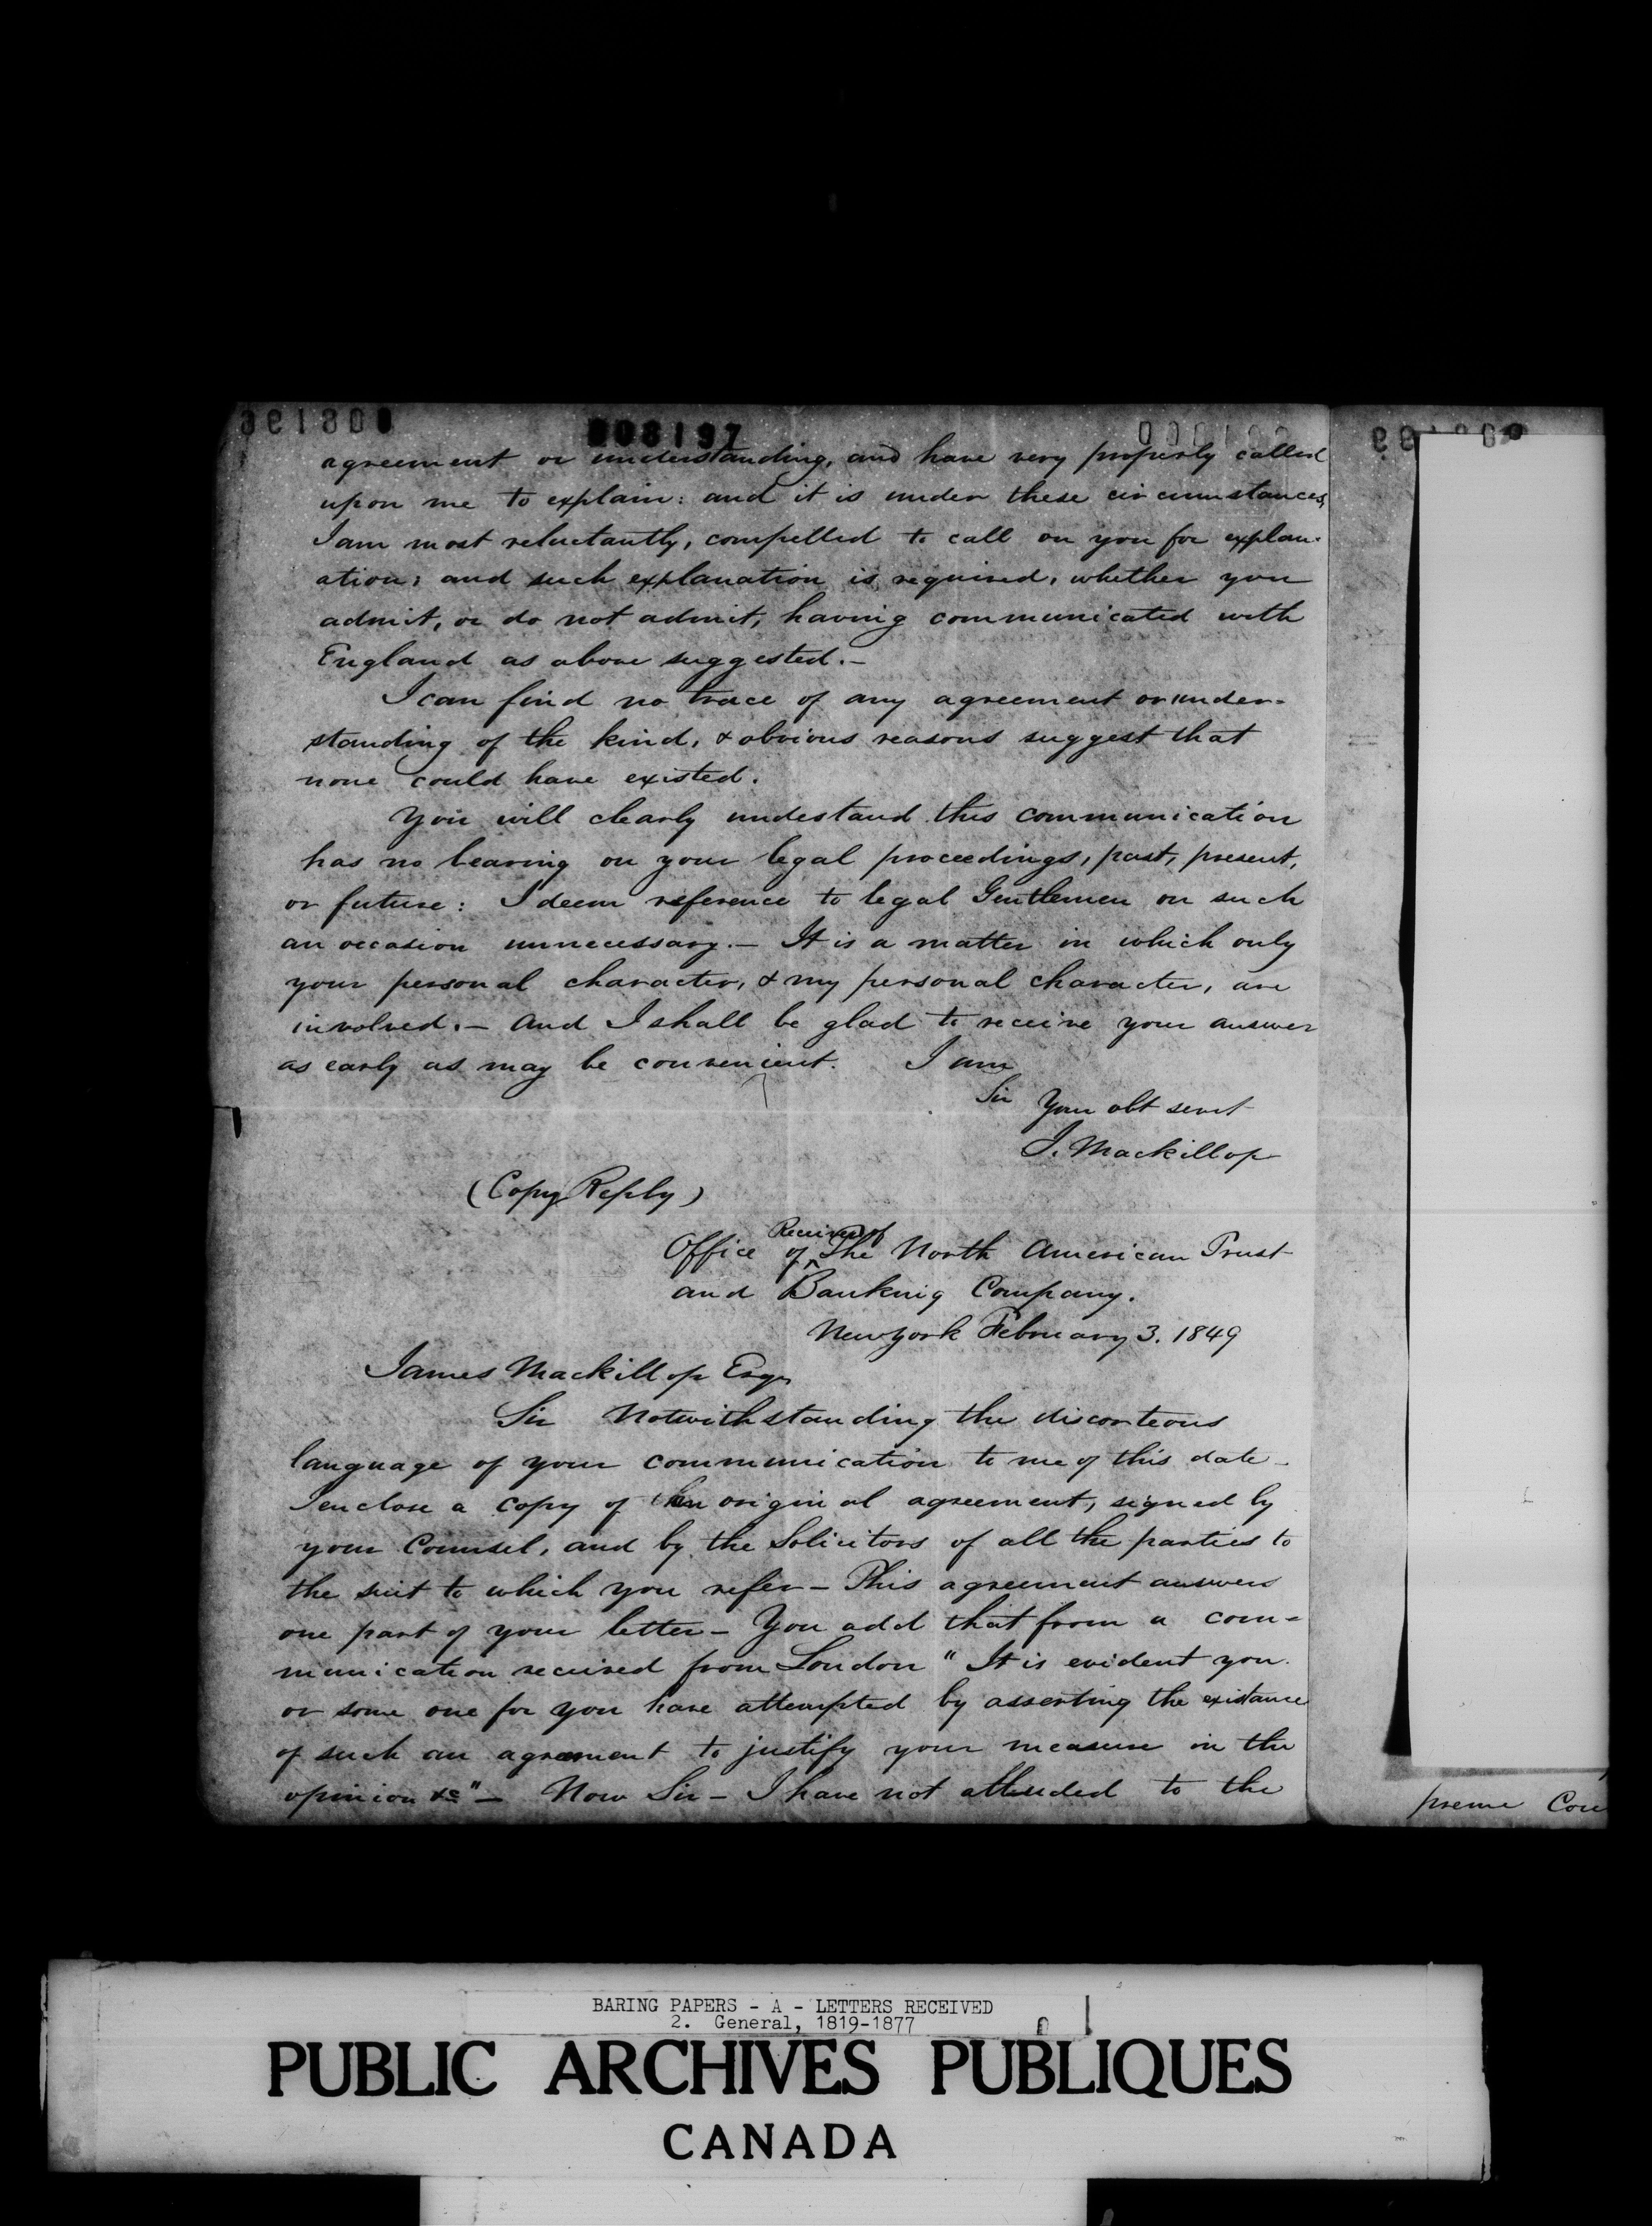 008197
agreement or understanding, and have very properly called
upon me to explain: and it is under these circumstances,
I am most reluctantly, compelled to call on you for explan-
ation; and such explanation is required, whether you
admit, or do not admit, having communicated with
England as above suggested.—
I can find no trace of any agreement or under-
standing of the kind, & obvious reasons suggest that
none could have existed.
You will clearly undestand this communication
has no bearing on your legal proceedings, past, present,
or future: I deem reference to legal Gentlemen on such
an occasion unnecessary.— It is a matter in which only
your personal character, & my personal character, are
involved.— And I shall be glad to receive your answer
as early as may be convenient. I am
Sir Your obt servt
J. Mackillop
(Copy Reply)
Receiver of
Office of ^ The North American Trust
and Banking Company.
New York February 3. 1849
James Mackillop Esqr
Sir Notwithstanding the discorteous
language of your communication to me of this date—
I enclose a copy of an original agreement, signed by
your Counsel, and by the Solicitors of all the parties to
the suit to which you refer— This agreement answers
one part of your letter— You add that from a com-
munication received from London "It is evident you
or some one for you have attempted by asserting the existance
of such an agreement to justify your measure in the
opinion &c"— Now Sir— I have not attended to the
preme Cou
BARING PAPERS - A - LETTERS RECEIVED
2. General, 1819-1877
PUBLIC ARCHIVES PUBLIQUES
CANADA